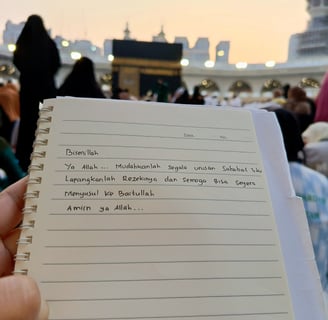 Date No.
Bismillah
Ya Allah... Mudahkanlah Segala urusan Sahabat
Lapangkanlah Rezekinya dan Semoga Bisa Segera
Menyusul Ke Baitullah
Amiin ya Allah...